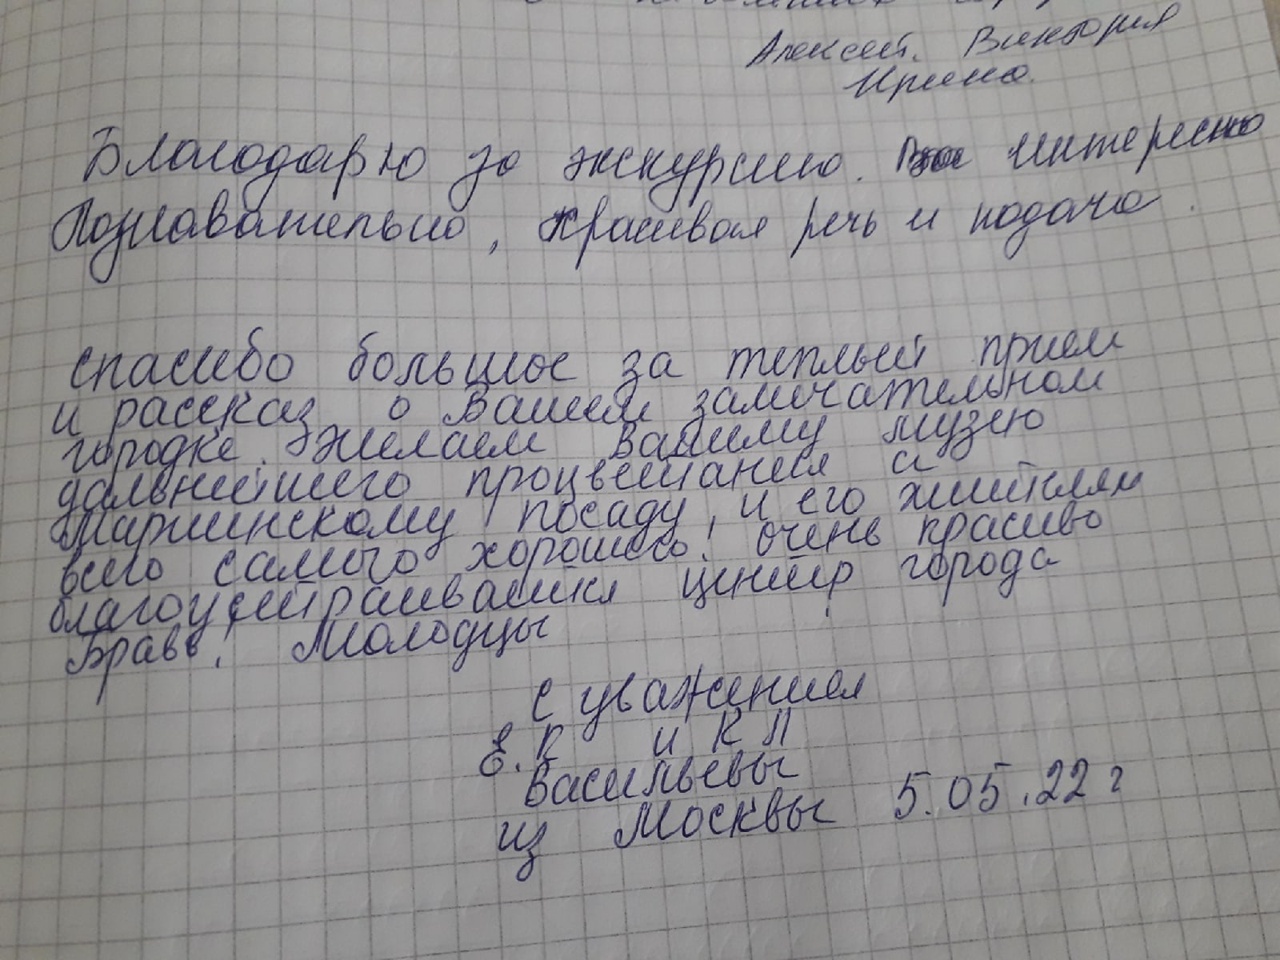 Алексей. Виктория
Ирина.
Благодарю за экскурсию. Интересно
Познавательно, красивая речь и подача.
спасибо большое за теплый прием
и рассказ о Вашем замечательном
городке. Желаем Вашему музею
дальнейшего процветания а
Мариинскому посаду, и его жителям
всего самого хорошего! очень красиво
благоустраивается центр города
Браво! Молодцы!
с уважением
Е.К и К П
Васильевы
из Москвы 5.05.22 г